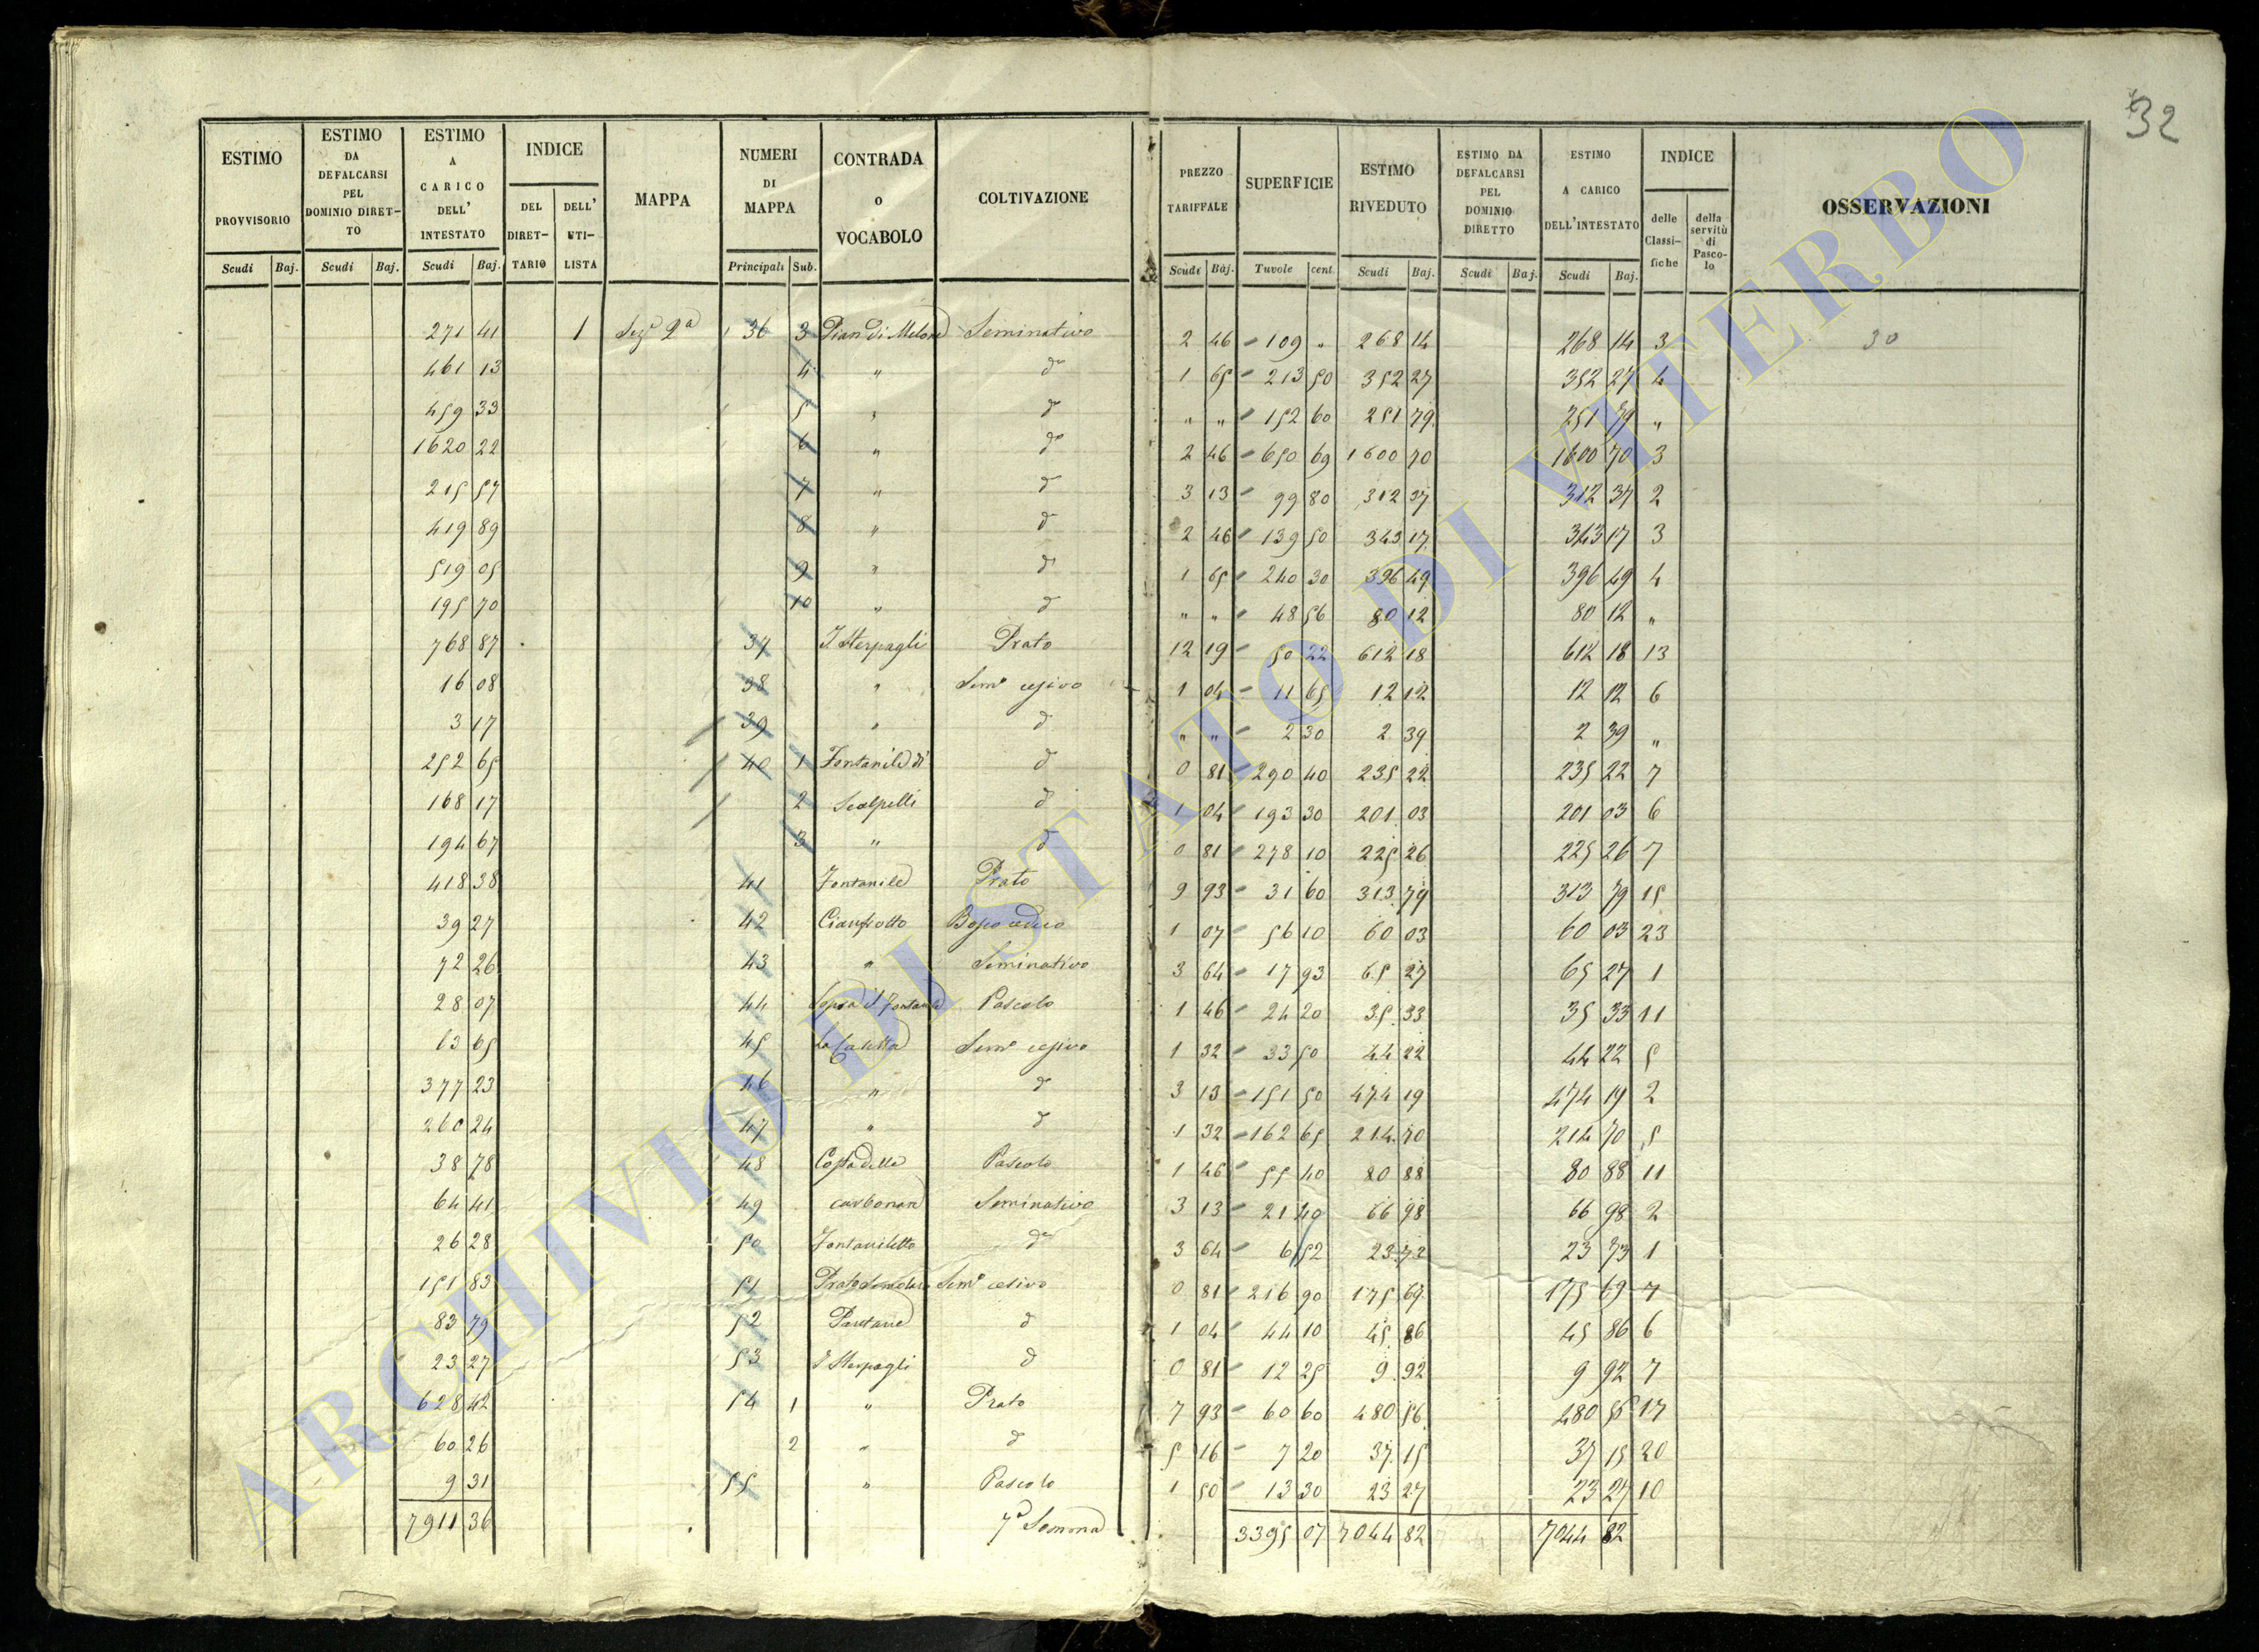 32
ESTIMO PROVVISORIO | ESTIMO DA DEFALCARSI PEL DOMINIO DIRETTO | ESTIMO A CARICO DELL' INTESTATO | INDICE | MAPPA | NUMERI DI MAPPA | CONTRADA O VOCABOLO | COLTIVAZIONE | PREZZO TARIFFALE | SUPERFICIE | ESTIMO RIVEDUTO | ESTIMO DA DEFALCARSI PEL DOMINIO DIRETTO | ESTIMO A CARICO DELL'INTESTATO | INDICE | OSSERVAZIONI
DEL DIRETTARIO | DELL' UTILISTA | delle Classifiche | della servitù di Pascolo
Scudi Baj. | Scudi Baj. | Scudi Baj. | Principali Sub. | Scudi Baj. | Tavole cent. | Scudi Baj. | Scudi Baj. | Scudi Baj.
271 41 | 1 | Sezᵉ 2ª | 36 3 | Pian di Melone | Seminativo | 2 46 | 109 " | 268 14 | 268 14 | 3 | 30
461 13 | 4 | " | dº | 1 65 | 213 50 | 352 27 | 352 27 | 4
459 33 | 5 | " | dº | " " | 152 60 | 251 79 | 251 79 | "
1620 22 | 6 | " | dº | 2 46 | 650 69 | 1600 70 | 1600 70 | 3
215 57 | 7 | " | dº | 3 13 | 99 80 | 312 37 | 312 37 | 2
419 89 | 8 | " | dº | 2 46 | 139 50 | 343 17 | 343 17 | 3
519 05 | 9 | " | dº | 1 65 | 240 30 | 396 49 | 396 49 | 4
195 70 | 10 | " | dº | " " | 48 56 | 80 12 | 80 12 | "
768 87 | 37 | I Sterpagli | Prato | 12 19 | 50 22 | 612 18 | 612 18 | 13
16 08 | 38 | " | Semº cesivo | 1 04 | 11 65 | 12 12 | 12 12 | 6
3 17 | 39 | " | dº | " " | 2 30 | 2 39 | 2 39 | "
252 65 | 40 1 | Fontanile di | dº | 0 81 | 290 40 | 235 22 | 235 22 | 7
168 17 | 2 | Scalpelli | dº | 1 04 | 193 30 | 201 03 | 201 03 | 6
194 67 | 3 | " | dº | 0 81 | 278 10 | 225 26 | 225 26 | 7
418 38 | 41 | Fontanile | Prato | 9 93 | 31 60 | 313 79 | 313 79 | 15
39 27 | 42 | Bosco ceduo | 1 07 | 56 10 | 60 03 | 60 03 | 23
72 26 | 43 | " | Seminativo | 3 64 | 17 93 | 65 27 | 65 27 | 1
28 07 | 44 | Sopra il Fontanile | Pascolo | 1 46 | 24 20 | 35 33 | 35 33 | 11
63 65 | 45 | La Casetta | Semº cesivo | 1 32 | 33 50 | 44 22 | 44 22 | 5
377 23 | 46 | " | dº | 3 13 | 151 50 | 474 19 | 474 19 | 2
260 24 | 47 | " | dº | 1 32 | 162 65 | 214 70 | 214 70 | 5
38 78 | 48 | Costa delle | Pascolo | 1 46 | 55 40 | 80 88 | 80 88 | 11
64 41 | 49 | carbonare | Seminativo | 3 13 | 21 40 | 66 98 | 66 98 | 2
26 28 | 50 | Fontaniletto | dº | 3 64 | 6 52 | 23 73 | 23 73 | 1
151 83 | 51 | Prato | Semº cesivo | 0 81 | 216 90 | 175 69 | 175 69 | 7
83 79 | 52 | Pantane | dº | 1 04 | 44 10 | 45 86 | 45 86 | 6
23 27 | 53 | I Sterpagli | dº | 0 81 | 12 25 | 9 92 | 9 92 | 7
628 42 | 54 1 | " | Prato | 7 93 | 60 60 | 480 56 | 480 56 | 17
60 26 | 2 | " | dº | 5 16 | 7 20 | 37 15 | 37 15 | 20
9 31 | 55 | " | Pascolo | 1 50 | 13 30 | 23 27 | 23 27 | 10
7911 36 | 7ª Somma | 3395 07 | 7044 82 | 7044 82
ARCHIVIO DI STATO DI VITERBO